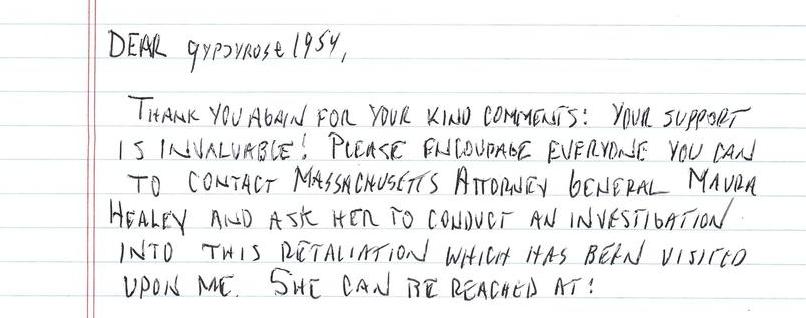 DEAR gypsyrose1954,
THANK YOU AGAIN FOR YOUR KIND COMMENTS! YOUR SUPPORT
IS INVALUABLE! PLEASE ENCOURAGE EVERYONE YOU CAN
TO CONTACT MASSACHUSETTS ATTORNEY GENERAL MAURA
HEALEY AND ASK HER TO CONDUCT AN INVESTIGATION
INTO THIS RETALIATION WHICH HAS BEEN VISITED
UPON ME. SHE CAN BE REACHED AT: